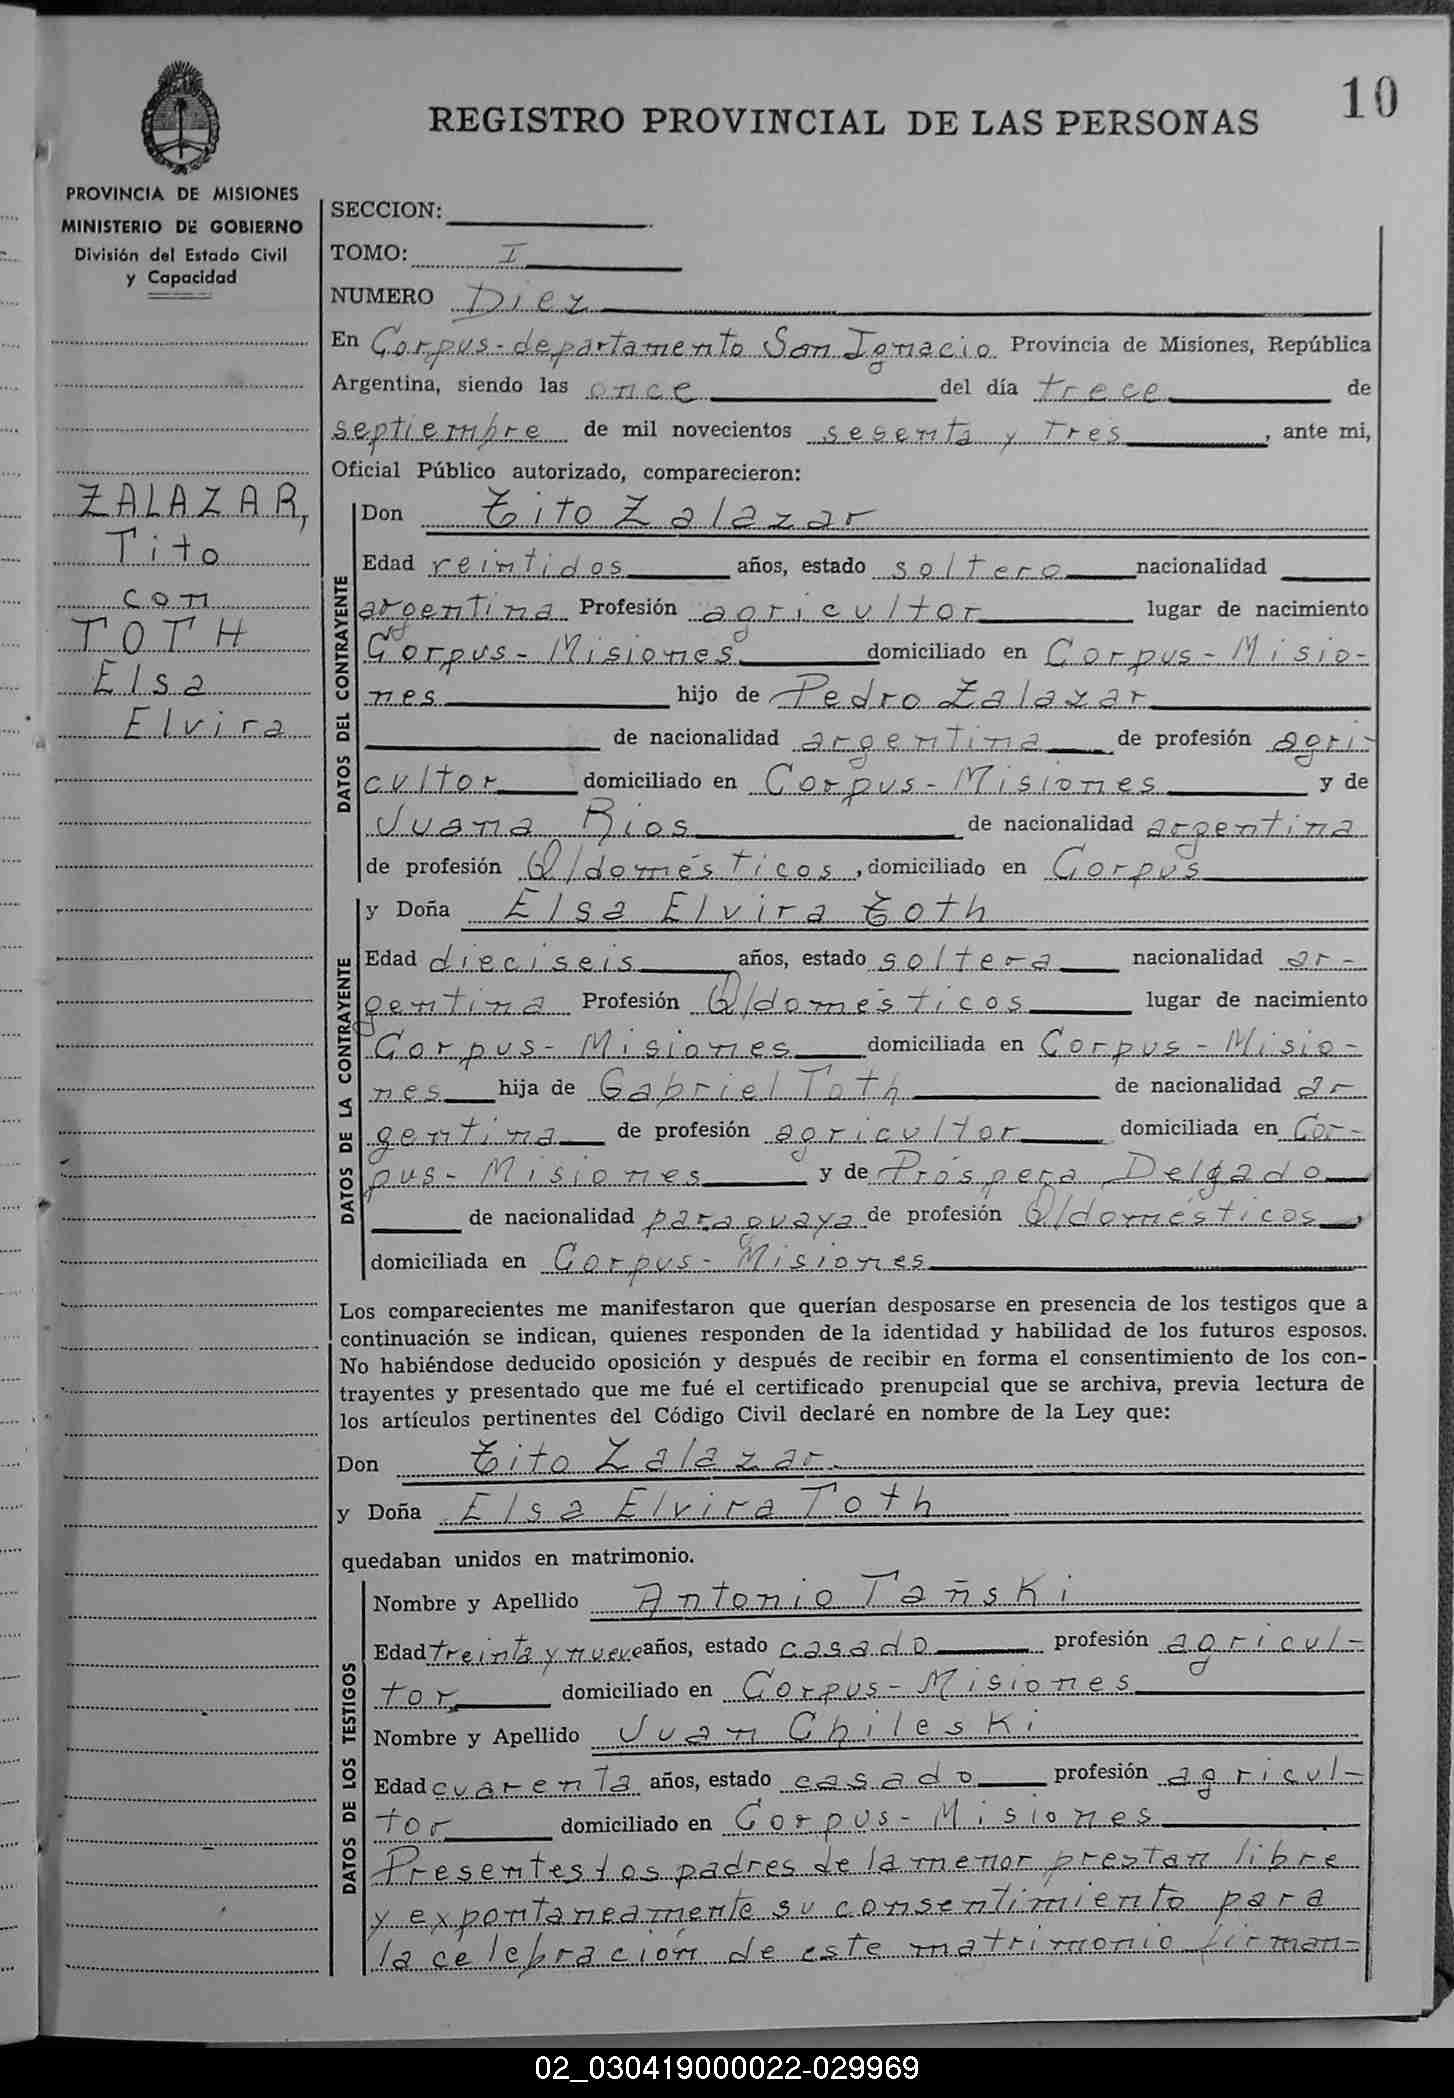 10
REGISTRO PROVINCIAL DE LAS PERSONAS
PROVINCIA DE MISIONES
MINISTERIO DE GOBIERNO
División del Estado Civil
y Capacidad
ZALAZAR,
Tito
con
TOTH
Elsa
Elvira
SECCION:
TOMO: I
NUMERO Diez
En Corpus-departamento San Ignacio Provincia de Misiones, República
Argentina, siendo las once del día trece de
septiembre de mil novecientos sesenta y tres, ante mi,
Oficial Público autorizado, comparecieron:
DATOS DEL CONTRAYENTE
Don Tito Zalazar
Edad veintidos años, estado soltero nacionalidad
argentina Profesión agricultor lugar de nacimiento
Corpus-Misiones domiciliado en Corpus-Misio-
nes hijo de Pedro Zalazar
de nacionalidad argentina de profesión agri-
cultor domiciliado en Corpus-Misiones y de
Juana Rios de nacionalidad argentina
de profesión Q/domésticos, domiciliado en Corpus
DATOS DE LA CONTRAYENTE
y Doña Elsa Elvira Toth
Edad dieciseis años, estado soltera nacionalidad ar-
gentina Profesión Q/domésticos lugar de nacimiento
Corpus-Misiones domiciliada en Corpus-Misio-
nes hija de Gabriel Toth de nacionalidad ar-
gentina de profesión agricultor domiciliada en Cor-
pus-Misiones y de Próspera Delgado
de nacionalidad paraguaya de profesión Q/domésticos,
domiciliada en Corpus-Misiones
Los comparecientes me manifestaron que querían desposarse en presencia de los testigos que a
continuación se indican, quienes responden de la identidad y habilidad de los futuros esposos.
No habiéndose deducido oposición y después de recibir en forma el consentimiento de los con-
trayentes y presentado que me fué el certificado prenupcial que se archiva, previa lectura de
los artículos pertinentes del Código Civil declaré en nombre de la Ley que:
Don Tito Zalazar
y Doña Elsa Elvira Toth
quedaban unidos en matrimonio.
DATOS DE LOS TESTIGOS
Nombre y Apellido Antonio Tañski
Edad treinta y nueve años, estado casado profesión agricul-
tor domiciliado en Corpus-Misiones
Nombre y Apellido Juan Chileski
Edad cuarenta años, estado casado profesión agricul-
tor domiciliado en Corpus-Misiones
Presentes los padres de la menor prestan libre
y expontaneamente su consentimiento para
la celebración de este matrimonio firman-
02_030419000022-029969